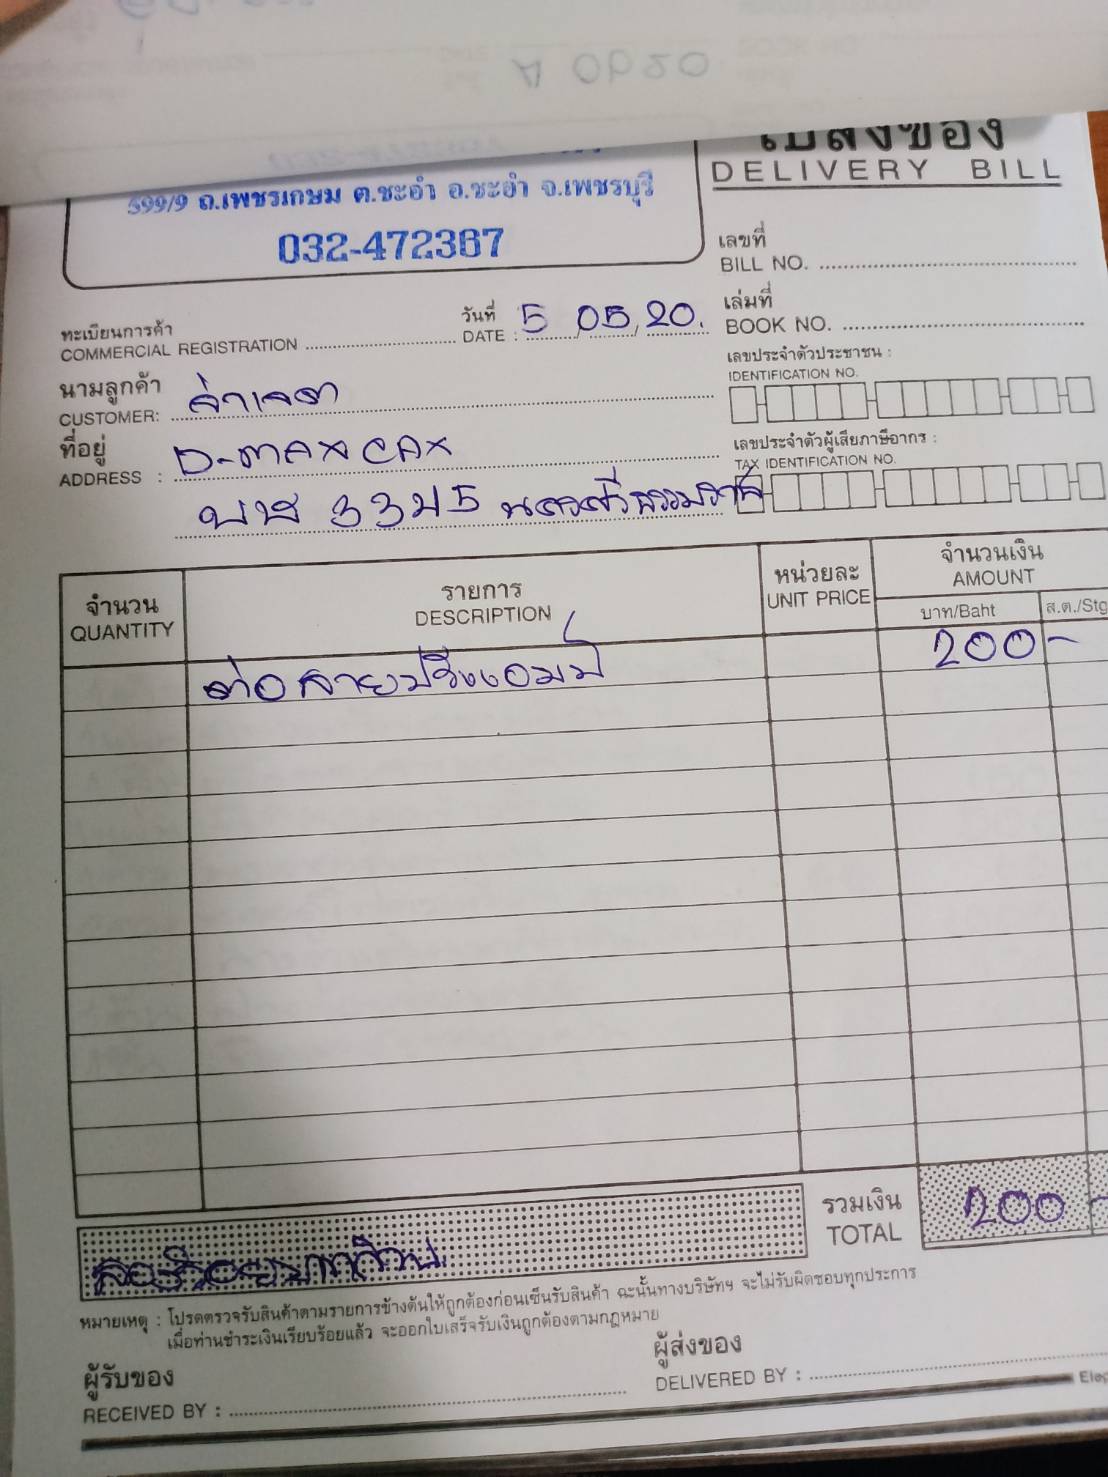 A 0620
ใบส่งของ
DELIVERY BILL
599/9 ถ.เพชรเกษม ต.ชะอำ อ.ชะอำ จ.เพชรบุรี
032-472367
เลขที่
BILL NO.
ทะเบียนการค้า
COMMERCIAL REGISTRATION
วันที่
DATE : 5 / 05 / 20.
เล่มที่
BOOK NO.
นามลูกค้า
CUSTOMER:
เลขประจำตัวประชาชน :
IDENTIFICATION NO.
ที่อยู่
ADDRESS : D-MAX CAX
บฬ 3345 นครศรีธรรมราช
เลขประจำตัวผู้เสียภาษีอากร :
TAX IDENTIFICATION NO.
จำนวน
QUANTITY
รายการ
DESCRIPTION
หน่วยละ
UNIT PRICE
จำนวนเงิน
AMOUNT
บาท/Baht
ส.ต./Stg
ต่อสายปริ้งแอมป์ 200 -
รวมเงิน
TOTAL
200 -
สองร้อยบาทถ้วน
หมายเหตุ : โปรดตรวจรับสินค้าตามรายการข้างต้นให้ถูกต้องก่อนเซ็นรับสินค้า ฉะนั้นทางบริษัทฯ จะไม่รับผิดชอบทุกประการ
เมื่อท่านชำระเงินเรียบร้อยแล้ว จะออกใบเสร็จรับเงินถูกต้องตามกฎหมาย
ผู้รับของ
RECEIVED BY :
ผู้ส่งของ
DELIVERED BY :